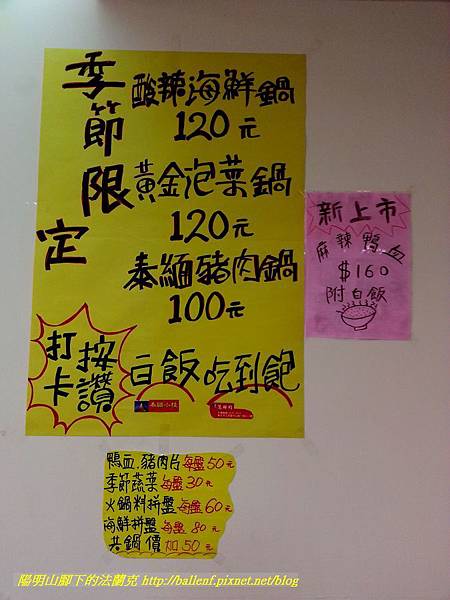 季節限定
酸辣海鮮鍋
120元
黃金泡菜鍋
120元
泰緬豬肉鍋
100元
打卡
按讚
白飯吃到飽
泰國小棧
新上市
麻辣鴨血
$160
附白飯
鴨血.豬肉片 每盤50元
季節蔬菜 每盤30元
火鍋料拼盤 每盤60元
海鮮拼盤 每盤80元
共鍋價 加50元
陽明山腳下的法蘭克 http://ballenf.pixnet.net/blog